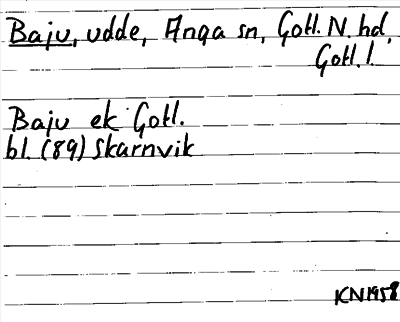 Baju, udde, Anga sn, Gotl. N. hd,
Gotl. l.
Baju ek Gotl.
bl. (89) Skarnvik
KN 1958